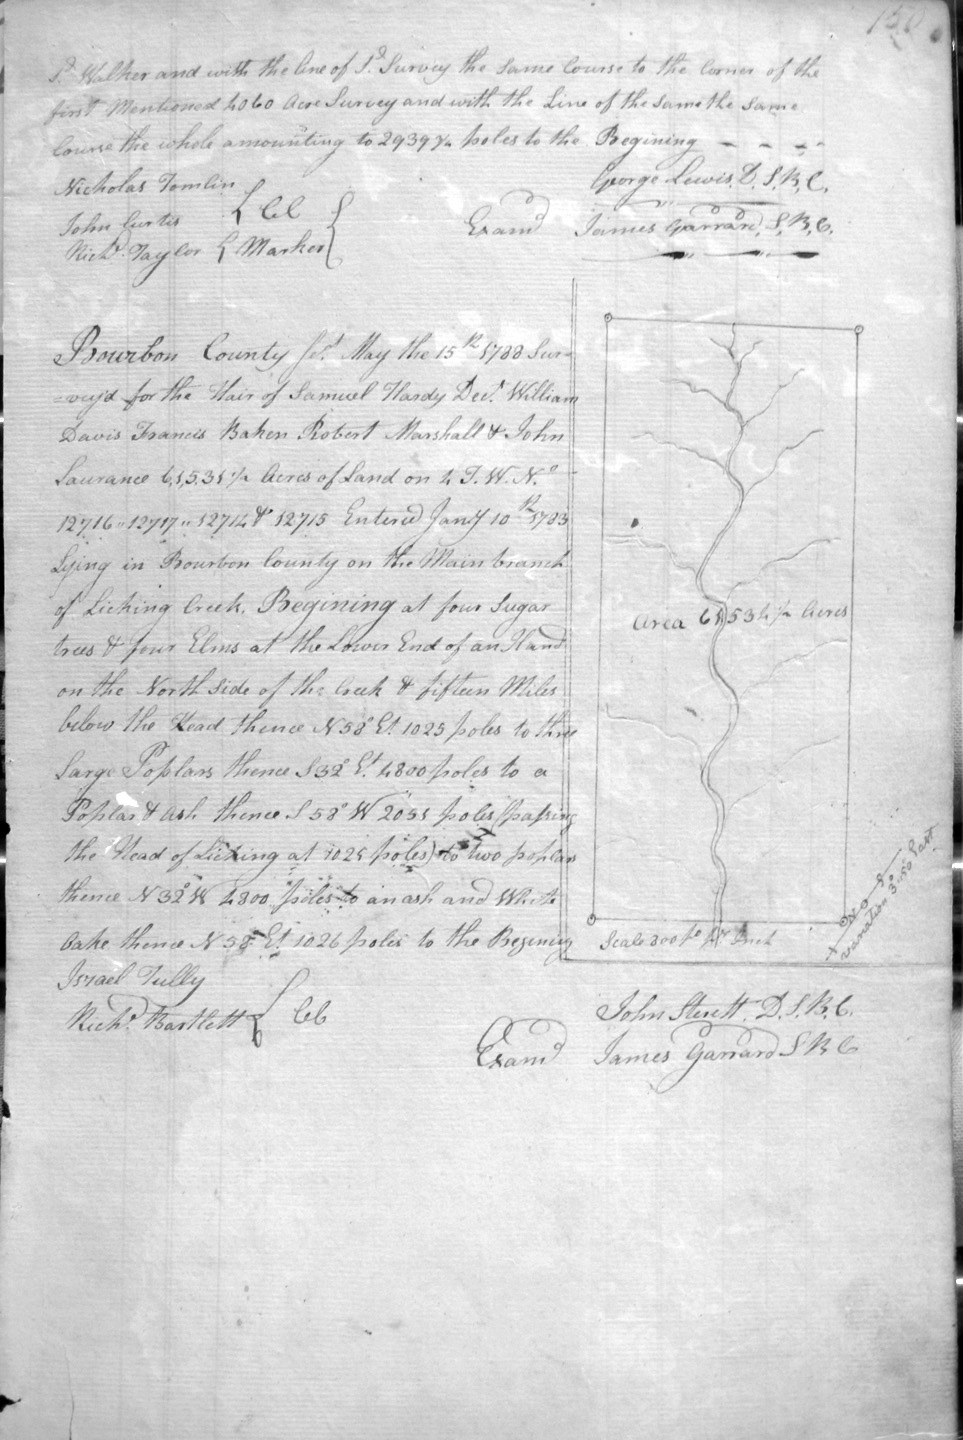 130
Sd Walker and with the line of Sd Survey the Same Course to the Corner of the
first Mentioned 4060 Acre Survey and with the Line of the same the same
Course the whole amounting to 2939¼ poles to the Begining
Nicholas Tomlin
John Curtis } CC
Richd Taylor } Marker
George Lewis, D. S. B. C.
Examd James Garrard, S. B. C.
Bourbon County Sct May the 15th 1788 Sur=
=vey'd for the Hair of Samuel Hardy Decd William
Davis Francis Baken Robert Marshall & John
Laurance 61,531½ Acres of Land on 4 T. W. No
12716 " 12717 " 12714 & 12715 Entered Jany 10th 1783
Lying in Bourbon County on the Main branch
of Licking Creek, Begining at four Sugar
trees & four Elms at the Lower End of an Iland
on the North side of the Creek & fifteen Miles
below the Head thence N 58° Et 1025 poles to three
Large Poplars thence S 32° Et 4800 poles to a
Poplar & Ash thence S 58° W 2051 poles (passing
the Head of Licking at 1025 poles) to two poplars
thence N 32° W 4800 poles to an ash and White
Oake thence N 58° Et 1026 poles to the Begining
Israel Tully
Richd Bartlett } CC
Area 61,531½ Acres
Scale 800 po pr Inch
variation 3:50 East
John Sterett. D. S. B. C.
Examd James Garrard S B C